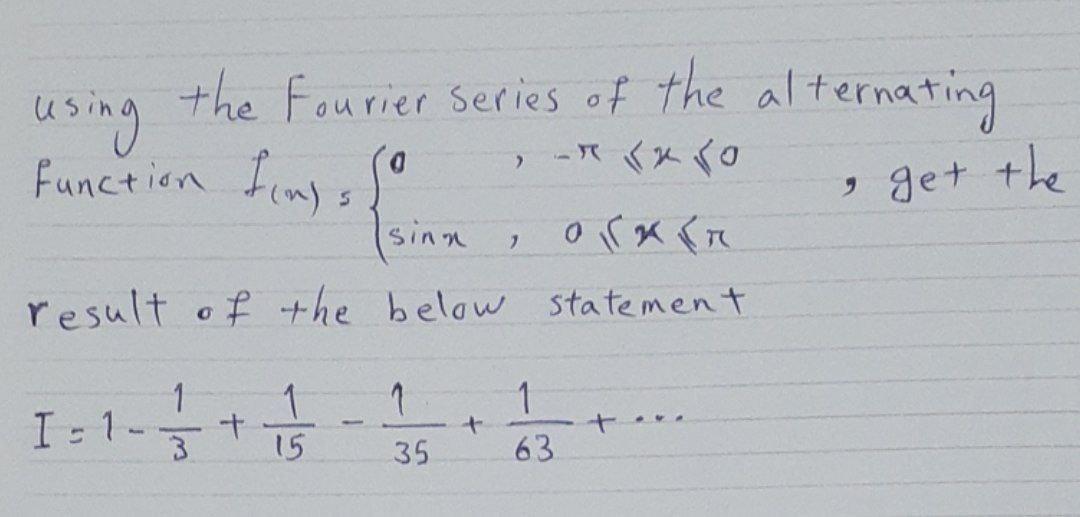 using the Fourier series of the alternating
function f(x) = { 0 , -π ≤ x ≤ 0 , get the
sin x , 0 ≤ x ≤ π
result of the below statement
I = 1 - 1/3 + 1/15 - 1/35 + 1/63 + ...